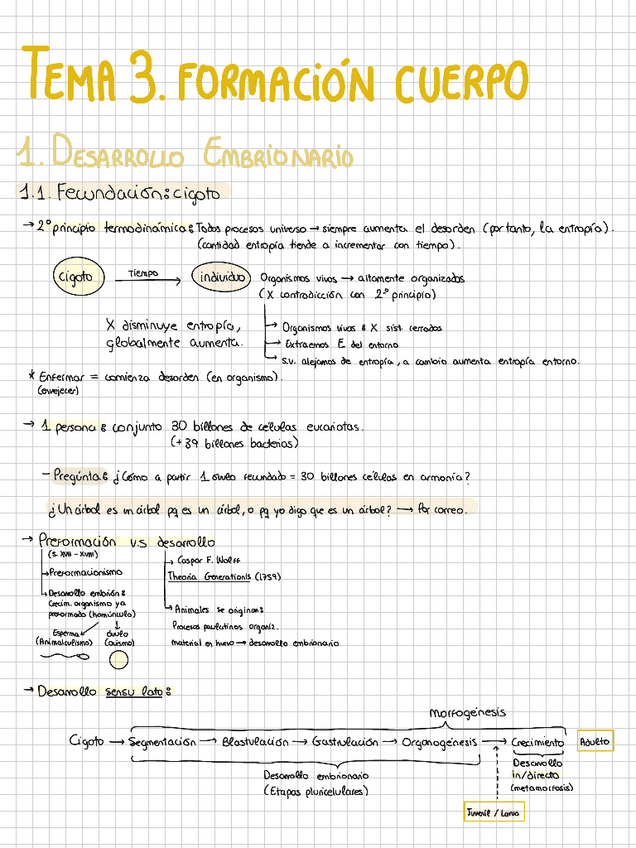 TEMA 3. FORMACIÓN CUERPO
1. DESARROLLO EMBRIONARIO
1.1. Fecundación: cigoto
→ 2º principio termodinámica: Todos procesos universo → siempre aumenta el desorden (por tanto, la entropía).
(cantidad entropía tiende a incrementar con tiempo).
cigoto
Tiempo
individuo
Organismos vivos → altamente organizados
(X contradicción con 2º principio)
X disminuye entropía,
globalmente aumenta.
Organismos vivos: X sist. cerrados
Extraemos E del entorno
s.v. alejamos de entropía, a cambio aumenta entropía entorno.
* Enfermar = comienza desorden (en organismo).
(envejecer)
→ 1 persona: conjunto 30 billones de células eucariotas.
(+39 billones bacterias)
- Pregunta: ¿Cómo a partir 1 óvulo fecundado = 30 billones células en armonía?
¿Un árbol es un árbol pq es un árbol, o pq yo digo que es un árbol? → Por correo.
→ Preformación v.s desarrollo
(s. XVII - XVIII)
Preformacionismo
Desarrollo embrión:
Crecim. organismo ya
preformado (homúnculo)
Esperma
(Animalculismo)
óvulo
(ovismo)
Caspar F. Wolff
Theoria Generationis (1759)
Animales se originan:
Procesos paulatinos organiz.
material en huevo → desarrollo embrionario
→ Desarrollo sensu lato:
Morfogénesis
Cigoto → Segmentación → Blastulación → Gastrulación → Organogénesis → Crecimiento Adulto
Desarrollo embrionario
(Etapas pluricelulares)
Desarrollo
in/directo
(metamorfosis)
Juvenil / Larva